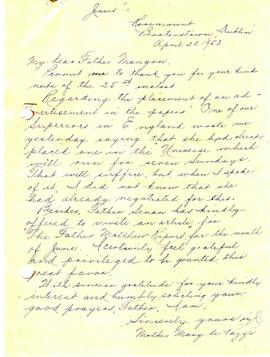 Jesus!
Rosemount
Booterstown Dublin
April 28, 1953
My dear Father Mangan,
Permit me to thank you for your kind
note of the 25th instant
Regarding the placement of an ad-
vertisement in the papers: One of our
Superiors in England wrote me
yesterday saying that she had already
placed one in the Universe which
will run for seven Sundays.
That will suffice, but when I spoke
of it, I did not know that she
had already negotiated for this.
Besides, Father Senan has kindly
offered to write an article for
"The Father Matthew Report for the month
of June. I certainly feel grateful
and privileged to be granted this
great favor.
With sincere gratitude for your kindly
interest and humbly soliciting your
good prayers, Father, I am,
Sincerely yours in
Mother Mary de